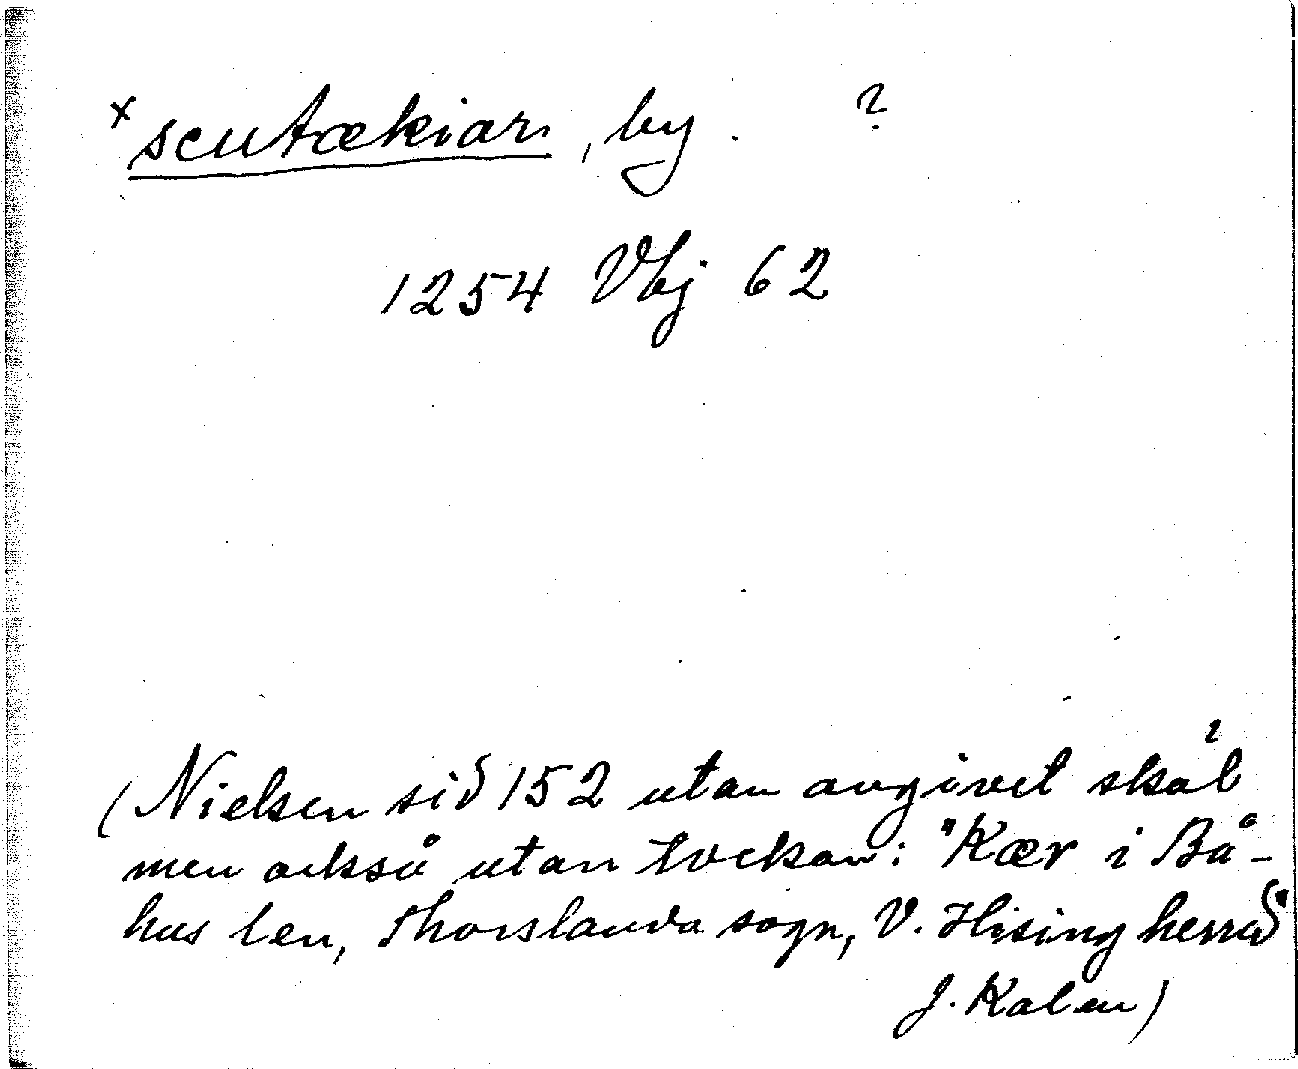 x scutækiær, by. ?
1254 Vbj 62
(Nielsen sid 152 utan angivet skäl
men också utan tvekan: "Kær i Bå-
hus len, Thorslanda sogn, V. Hising herred"
J. Kalén)